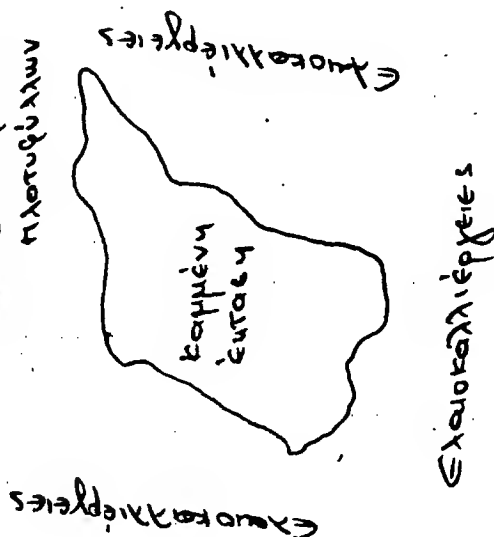 Ελαιοκαλλιέργειες
πλατυφύλλων
καμμένη
έκταση
Ελαιοκαλλιέργειες
Ελαιοκαλλιέργειες